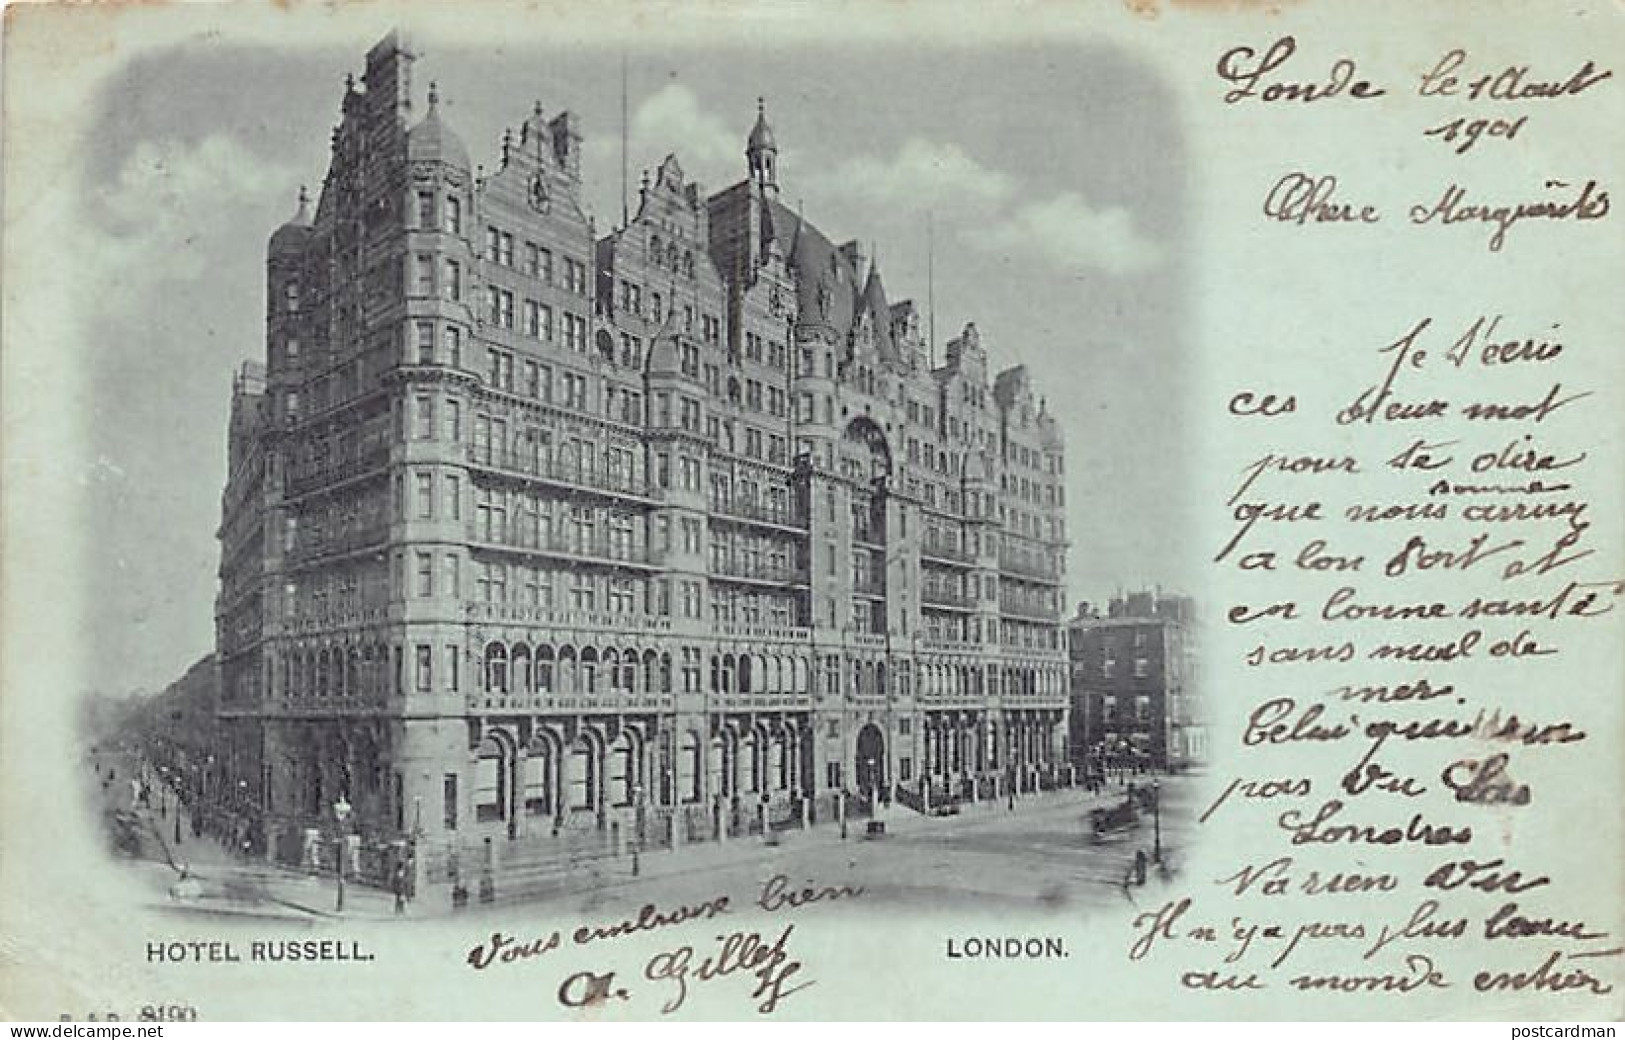 Londe le 1 Aout
1901
Chere Marguerite
Je t'écris
ces deux mot
pour te dire
somme
que nous arrivez
a bon Port et
en bonne santé
sans mal de
mer.
Celui qui
pas Vu
Londres
Na rien Vu
Il n'y a pas plus beau
au monde entier
Vous embrasse bien
A. Gillet
HOTEL RUSSELL.
LONDON.
8190
postcardman
www.delcampe.net